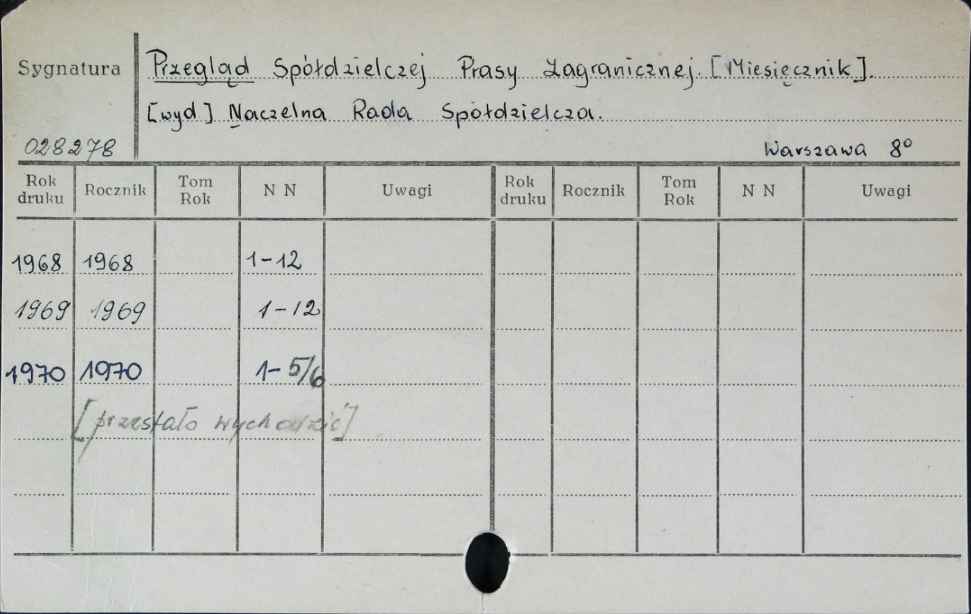 Sygnatura
Przegląd Spółdzielczej Prasy Zagranicznej. [Miesięcznik].
[wyd] Naczelna Rada Spółdzielcza.
028278
Warszawa 8°
Rok druku Rocznik Tom Rok N N Uwagi Rok druku Rocznik Tom Rok N N Uwagi
1968 1968 1-12
1969 1969 1-12
1970 1970 1-5/6
[przestało wychodzić]